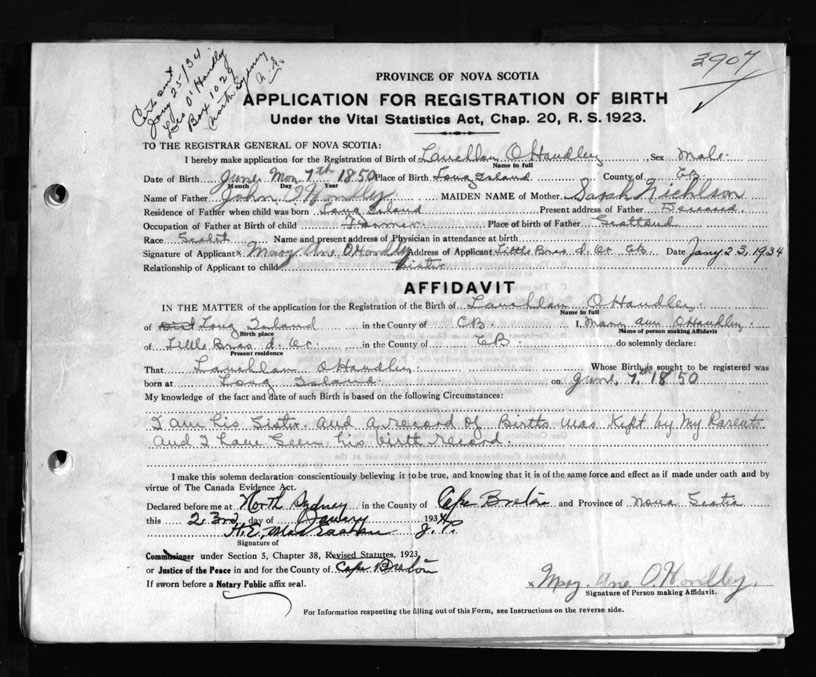 Cert sent
Jany 25/34
Geo O'Handley
Box 1029
North Sydney
N.S.
3907
PROVINCE OF NOVA SCOTIA
APPLICATION FOR REGISTRATION OF BIRTH
Under the Vital Statistics Act, Chap. 20, R. S. 1923.
TO THE REGISTRAR GENERAL OF NOVA SCOTIA:
I hereby make application for the Registration of Birth of Lauchlan O Handley Sex Male
Name in full
Date of Birth June Mon 7th 1850 Place of Birth Long Island County of CB
Month Day Year
Name of Father John O'Handley MAIDEN NAME of Mother Sarah Nichlson
Residence of Father when child was born Long Island Present address of Father Deceased
Occupation of Father at Birth of child Farmer Place of birth of Father Scotland
Race Scotch Name and present address of Physician in attendance at birth
Signature of Applicant x Mary Ane O Handley Address of Applicant Little Bras d. Or CB Date Jany 23, 1934
Relationship of Applicant to child Sister
AFFIDAVIT
IN THE MATTER of the application for the Registration of the Birth of Lauchlan O Handley
Name in full
of Long Island in the County of CB I, Mary Ann O Handley
Birth place Name of person making Affidavit
of Little Bras d. Or. in the County of CB do solemnly declare:
Present residence
That Lauchlan O Handley Whose Birth is sought to be registered was
born at Long Island on June, 7th 1850
My knowledge of the fact and date of such Birth is based on the following Circumstances:
I am his Sister. and a record of Births was Kept by My Parents
and I have seen his birth record.
I make this solemn declaration conscientiously believing it to be true, and knowing that it is of the same force and effect as if made under oath and by
virtue of The Canada Evidence Act.
Declared before me at North Sydney in the County of Cape Breton and Province of Nova Scotia
this 23rd day of January 1934
H. E. J. P.
Signature of
Commissioner under Section 5, Chapter 38, Revised Statutes, 1923,
or Justice of the Peace in and for the County of Cape Breton
If sworn before a Notary Public affix seal.
x Mary Ane O. Handley.
Signature of Person making Affidavit.
For Information respecting the filling out of this Form, see Instructions on the reverse side.